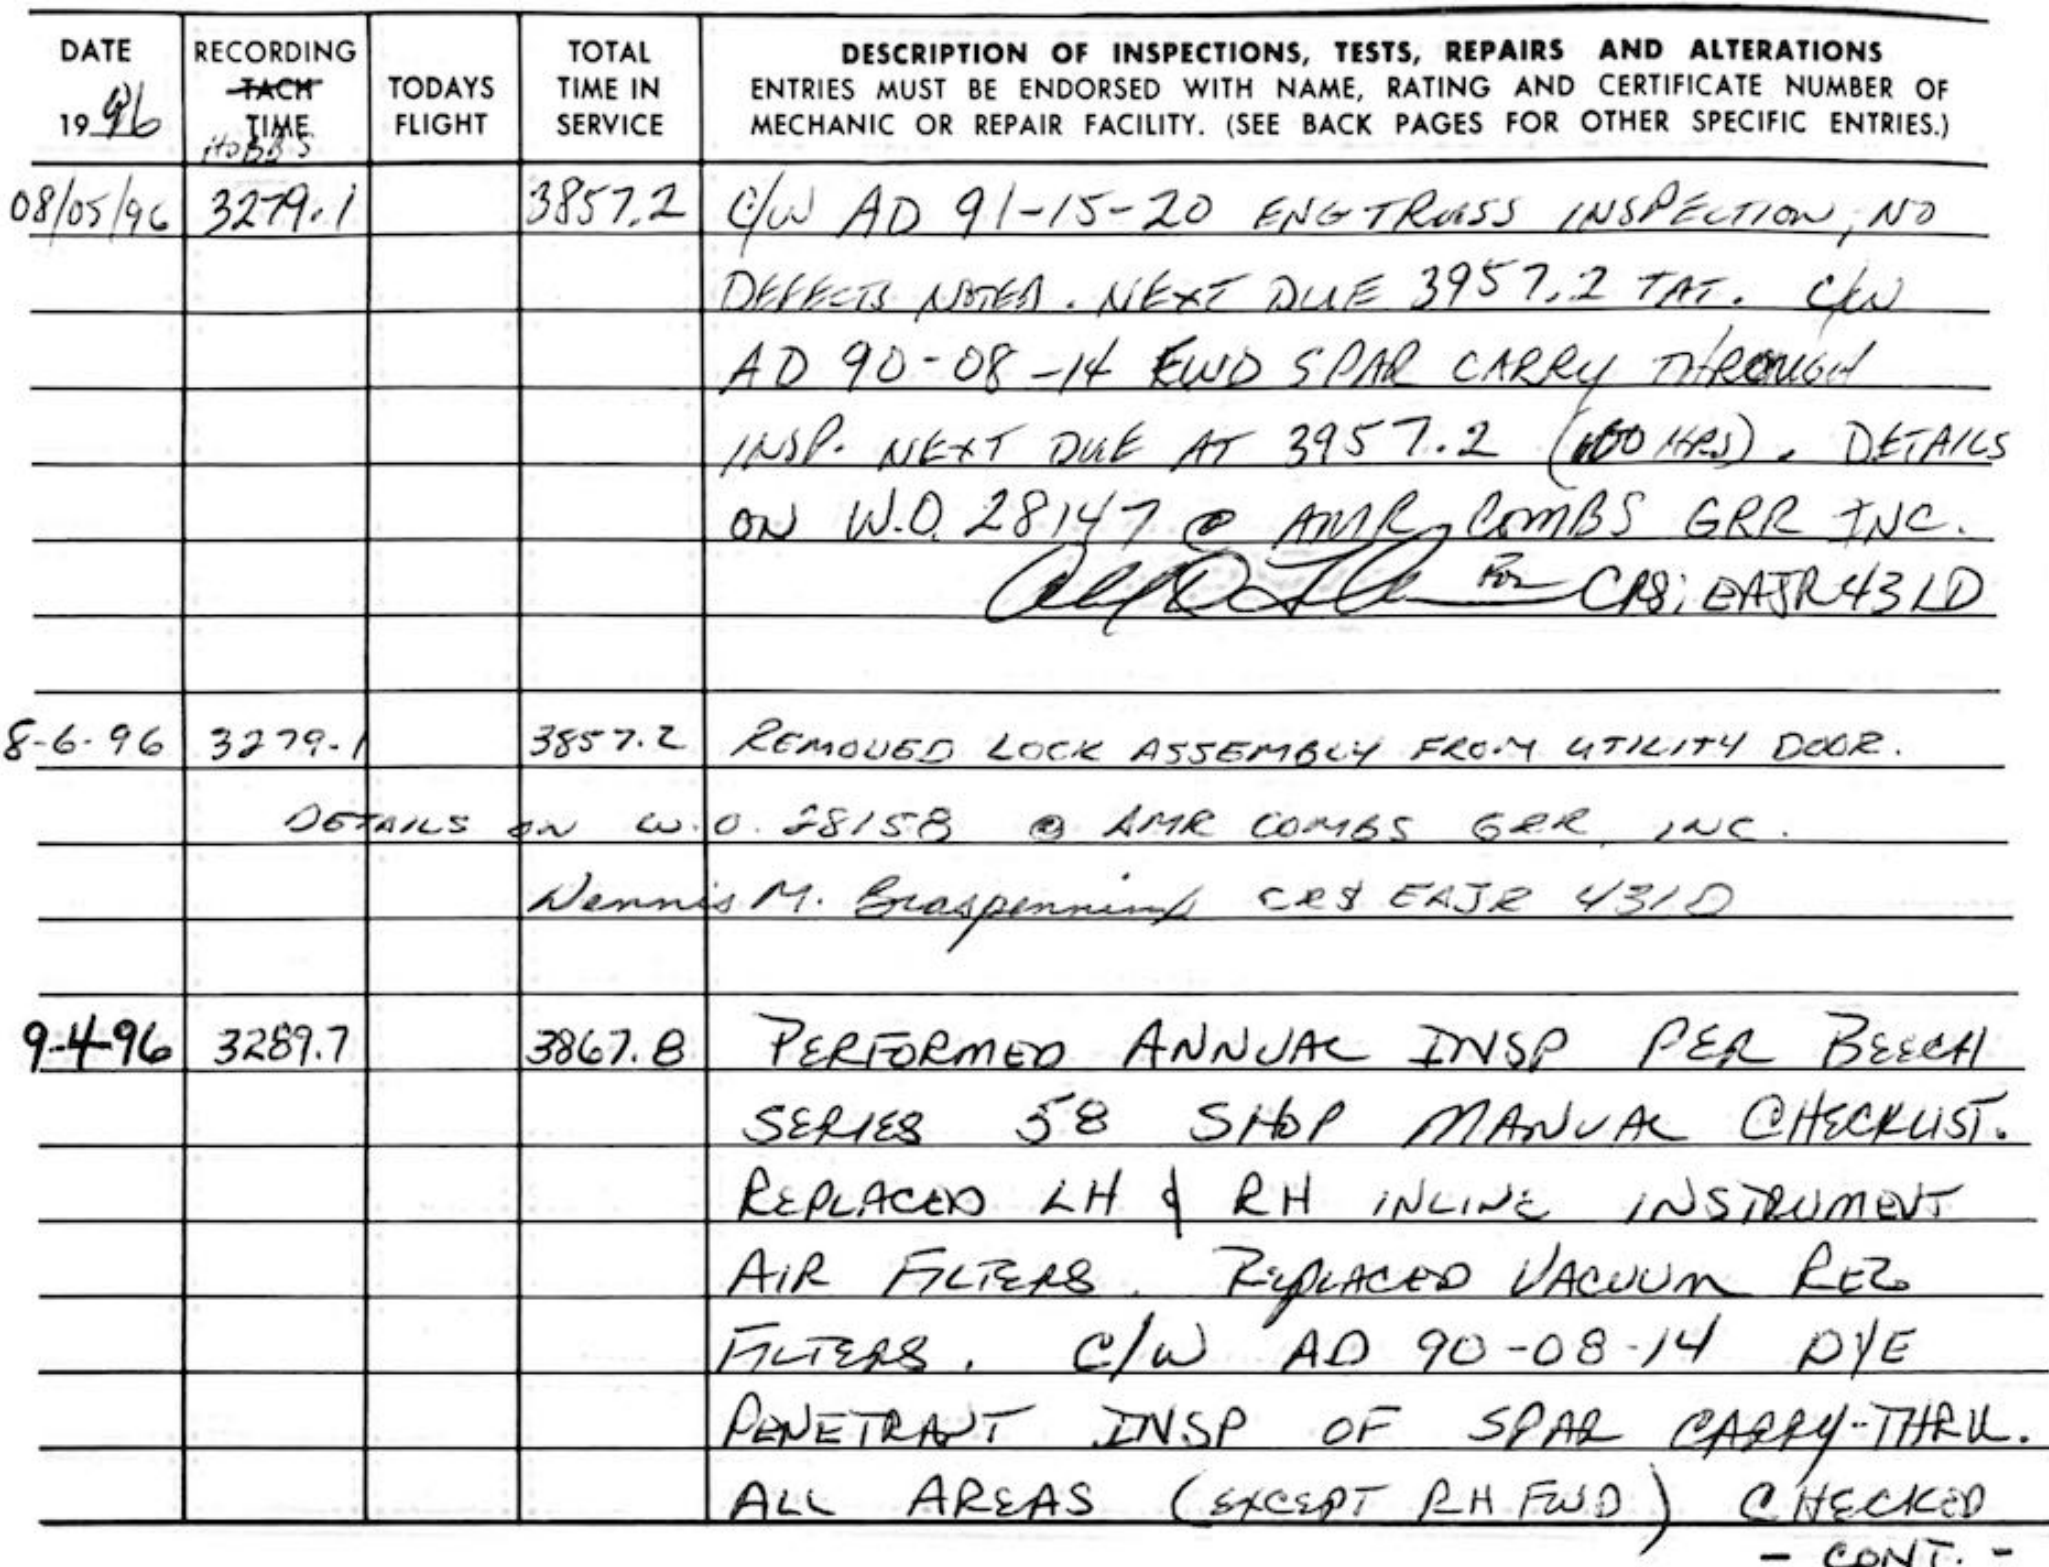 DATE RECORDING TOTAL DESCRIPTION OF INSPECTIONS, TESTS, REPAIRS AND ALTERATIONS
TACH TODAYS TIME IN ENTRIES MUST BE ENDORSED WITH NAME, RATING AND CERTIFICATE NUMBER OF
1996 TIME FLIGHT SERVICE MECHANIC OR REPAIR FACILITY. (SEE BACK PAGES FOR OTHER SPECIFIC ENTRIES.)
HOBBS
08/05/96 3279.1 3857.2 C/W AD 91-15-20 ENG TRUSS INSPECTION, NO
DEFECTS NOTED. NEXT DUE 3957.2 TAT. C/W
AD 90-08-14 FWD SPAR CARRY THROUGH
INSP. NEXT DUE AT 3957.2 (100 HRS). DETAILS
ON W.O. 28147 @ AMR COMBS GRR INC.
FOR CRS; EAJR431D
8-6-96 3279.1 3857.2 REMOVED LOCK ASSEMBLY FROM UTILITY DOOR.
DETAILS ON W.O. 28158 @ AMR COMBS GRR, INC.
Dennis M. Braspenninx CRS EAJR 431D
9-4-96 3289.7 3867.8 PERFORMED ANNUAL INSP PER BEECH
SERIES 58 SHOP MANUAL CHECKLIST.
REPLACED LH & RH INLINE INSTRUMENT
AIR FILTERS. REPLACED VACUUM REG
FILTERS. C/W AD 90-08-14 DYE
PENETRANT INSP OF SPAR CARRY-THRU.
ALL AREAS (EXCEPT RH FWD) CHECKED
- CONT. -